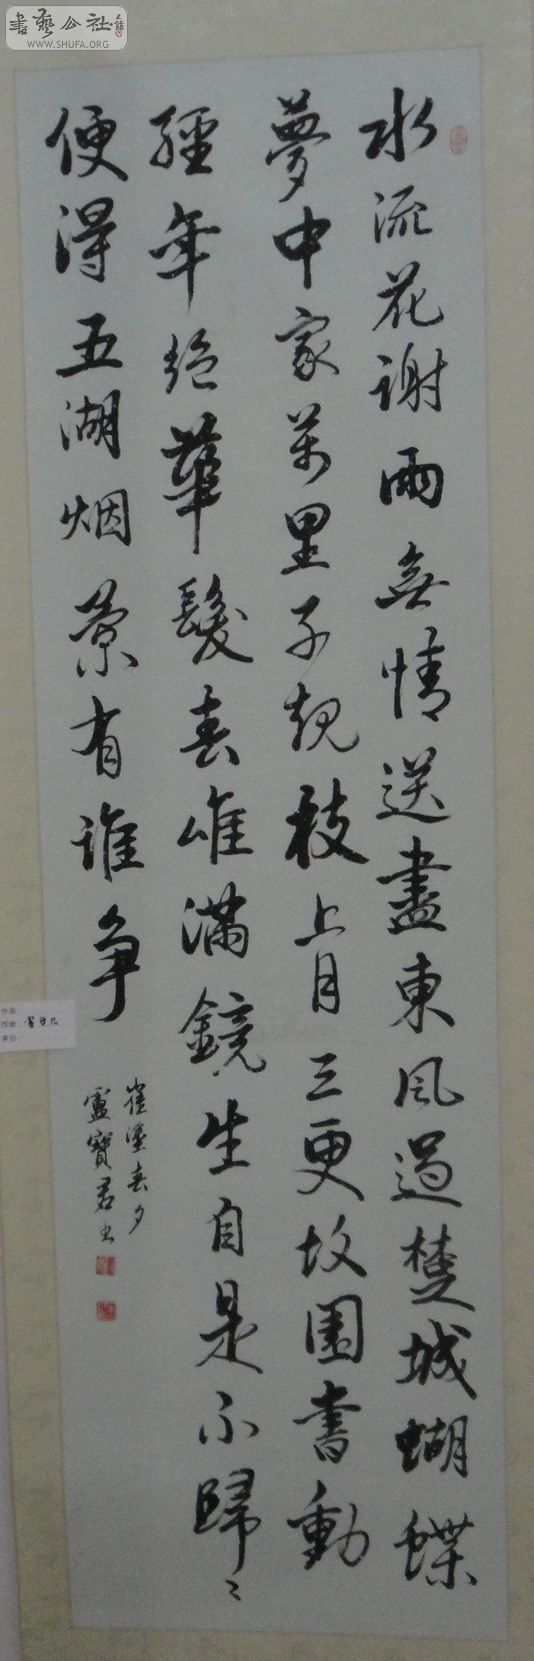 書藝公社
WWW.SHUFA.ORG
水流花謝兩無情送盡東風過楚城蝴蝶
夢中家萬里子規枝上月三更故園書動
經年絕華髮春唯滿鏡生自是不歸〻
便得五湖烟景有誰爭
崔塗春夕
盧寶君书
作品：
作者：
单位：